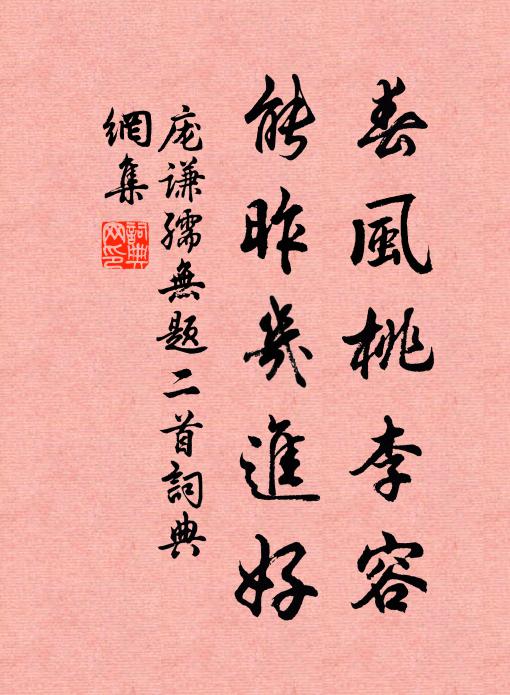 春風桃李容
能昨幾進好
庞谦孺無题二首詞典
網集
詞典網印